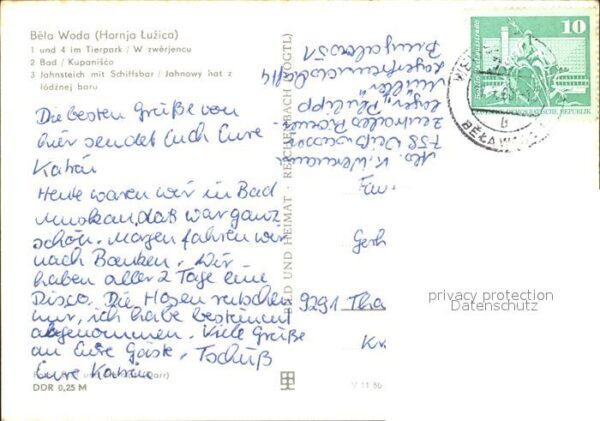 Běła Woda (Hornja Łužica)
1 und 4 im Tierpark / W zwěrjencu
2 Bad / Kupanišćo
3 Jahnsteich mit Schiffsbar / Jahnowy hat z
łódźnej baru
Die besten Grüße von
hier sendet Euch Eure
Katrin
Heute waren wir in Bad
Muskau, das war ganz
schön. Morgen fahren wir
nach Bautzen. Wir
haben aller 2 Tage eine
Disco. Die Hosen rutschen
nur, ich habe bestimmt
abgenommen. Viele Grüße
an Eure Gäste, Tschüß
Eure Katrin
DDR 0,25 M
BILD UND HEIMAT · REICHENBACH (VOGTL)
V 11 50
K. Wermann
758 Weißwasser
Zentrales Pionier-
lager "Philipp
Müller"
10
DEUTSCHE DEMOKRATISCHE REPUBLIK
BĚŁA WODA
b
Fam.
Gerh
9291 Tha
Kr.
privacy protection
Datenschutz